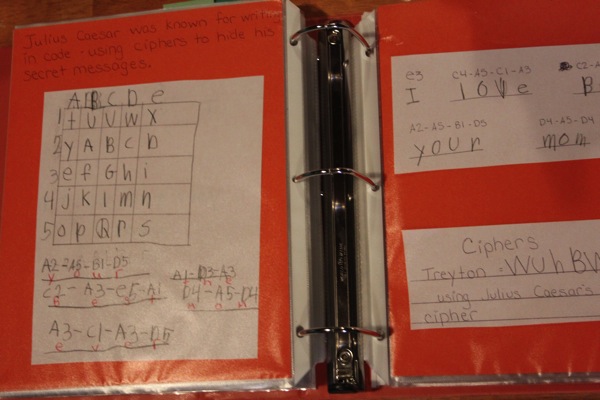 Julius Caesar was known for writing
in code - using ciphers to hide his
secret messages.
A B C D e
1 t u U W X
2 y A B C D
3 e f G h i
4 j k l m n
5 o p Q r s
A2-A5-B1-D5
y o u r
A1-D3-A3
h e
C2-A3-e5-A1
B e s t
D4-A5-D4
m o m
A3-C1-A3-D5
e v e r
e3 C4-A5-C1-A3
I love B
A2-A5-B1-D5 D4-A5-D4
your mom
Ciphers
Treyton = WUhBW
using Julius Caesar's
cipher